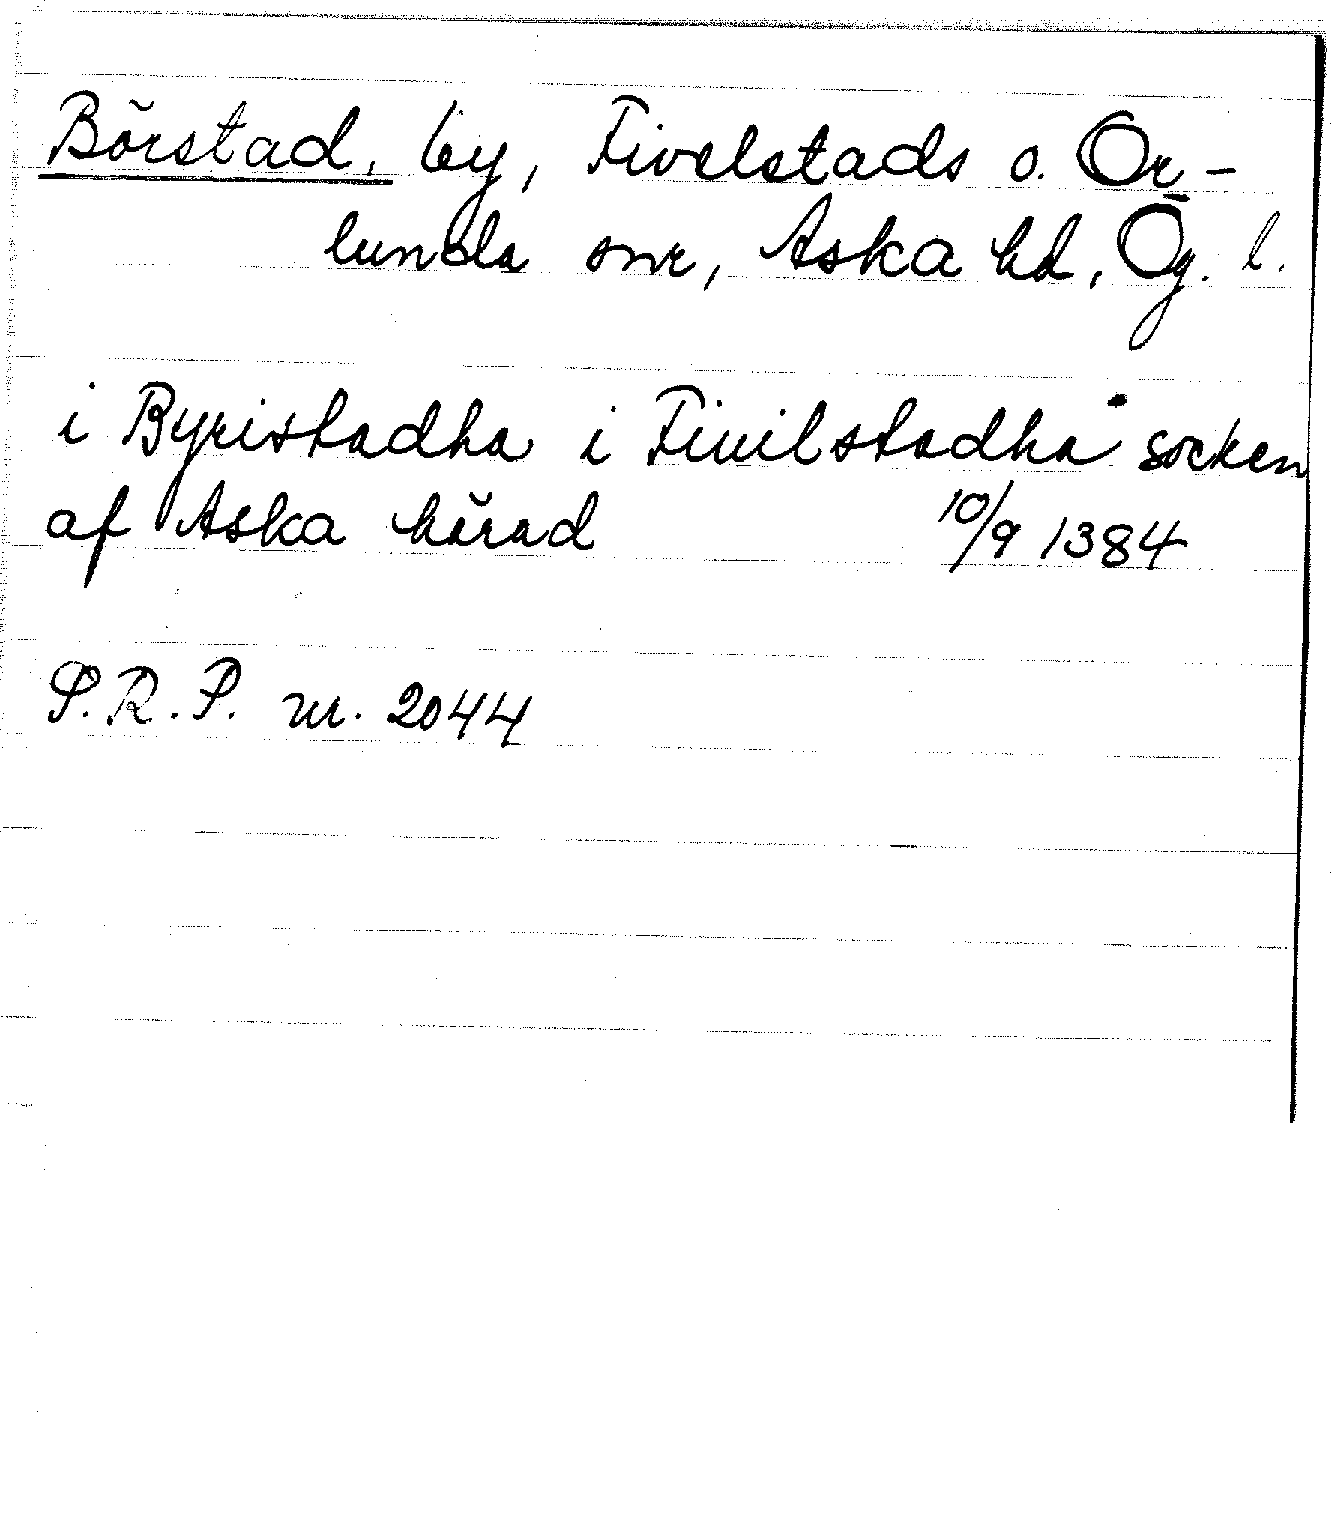 Börstad, by, Fivelstads o. Or-
lunda snr, Aska hd, Ög. l.
i Byristadha i Fiuilstadha socken
af Aska härad 10/9 1384
S.R.P. nr. 2044